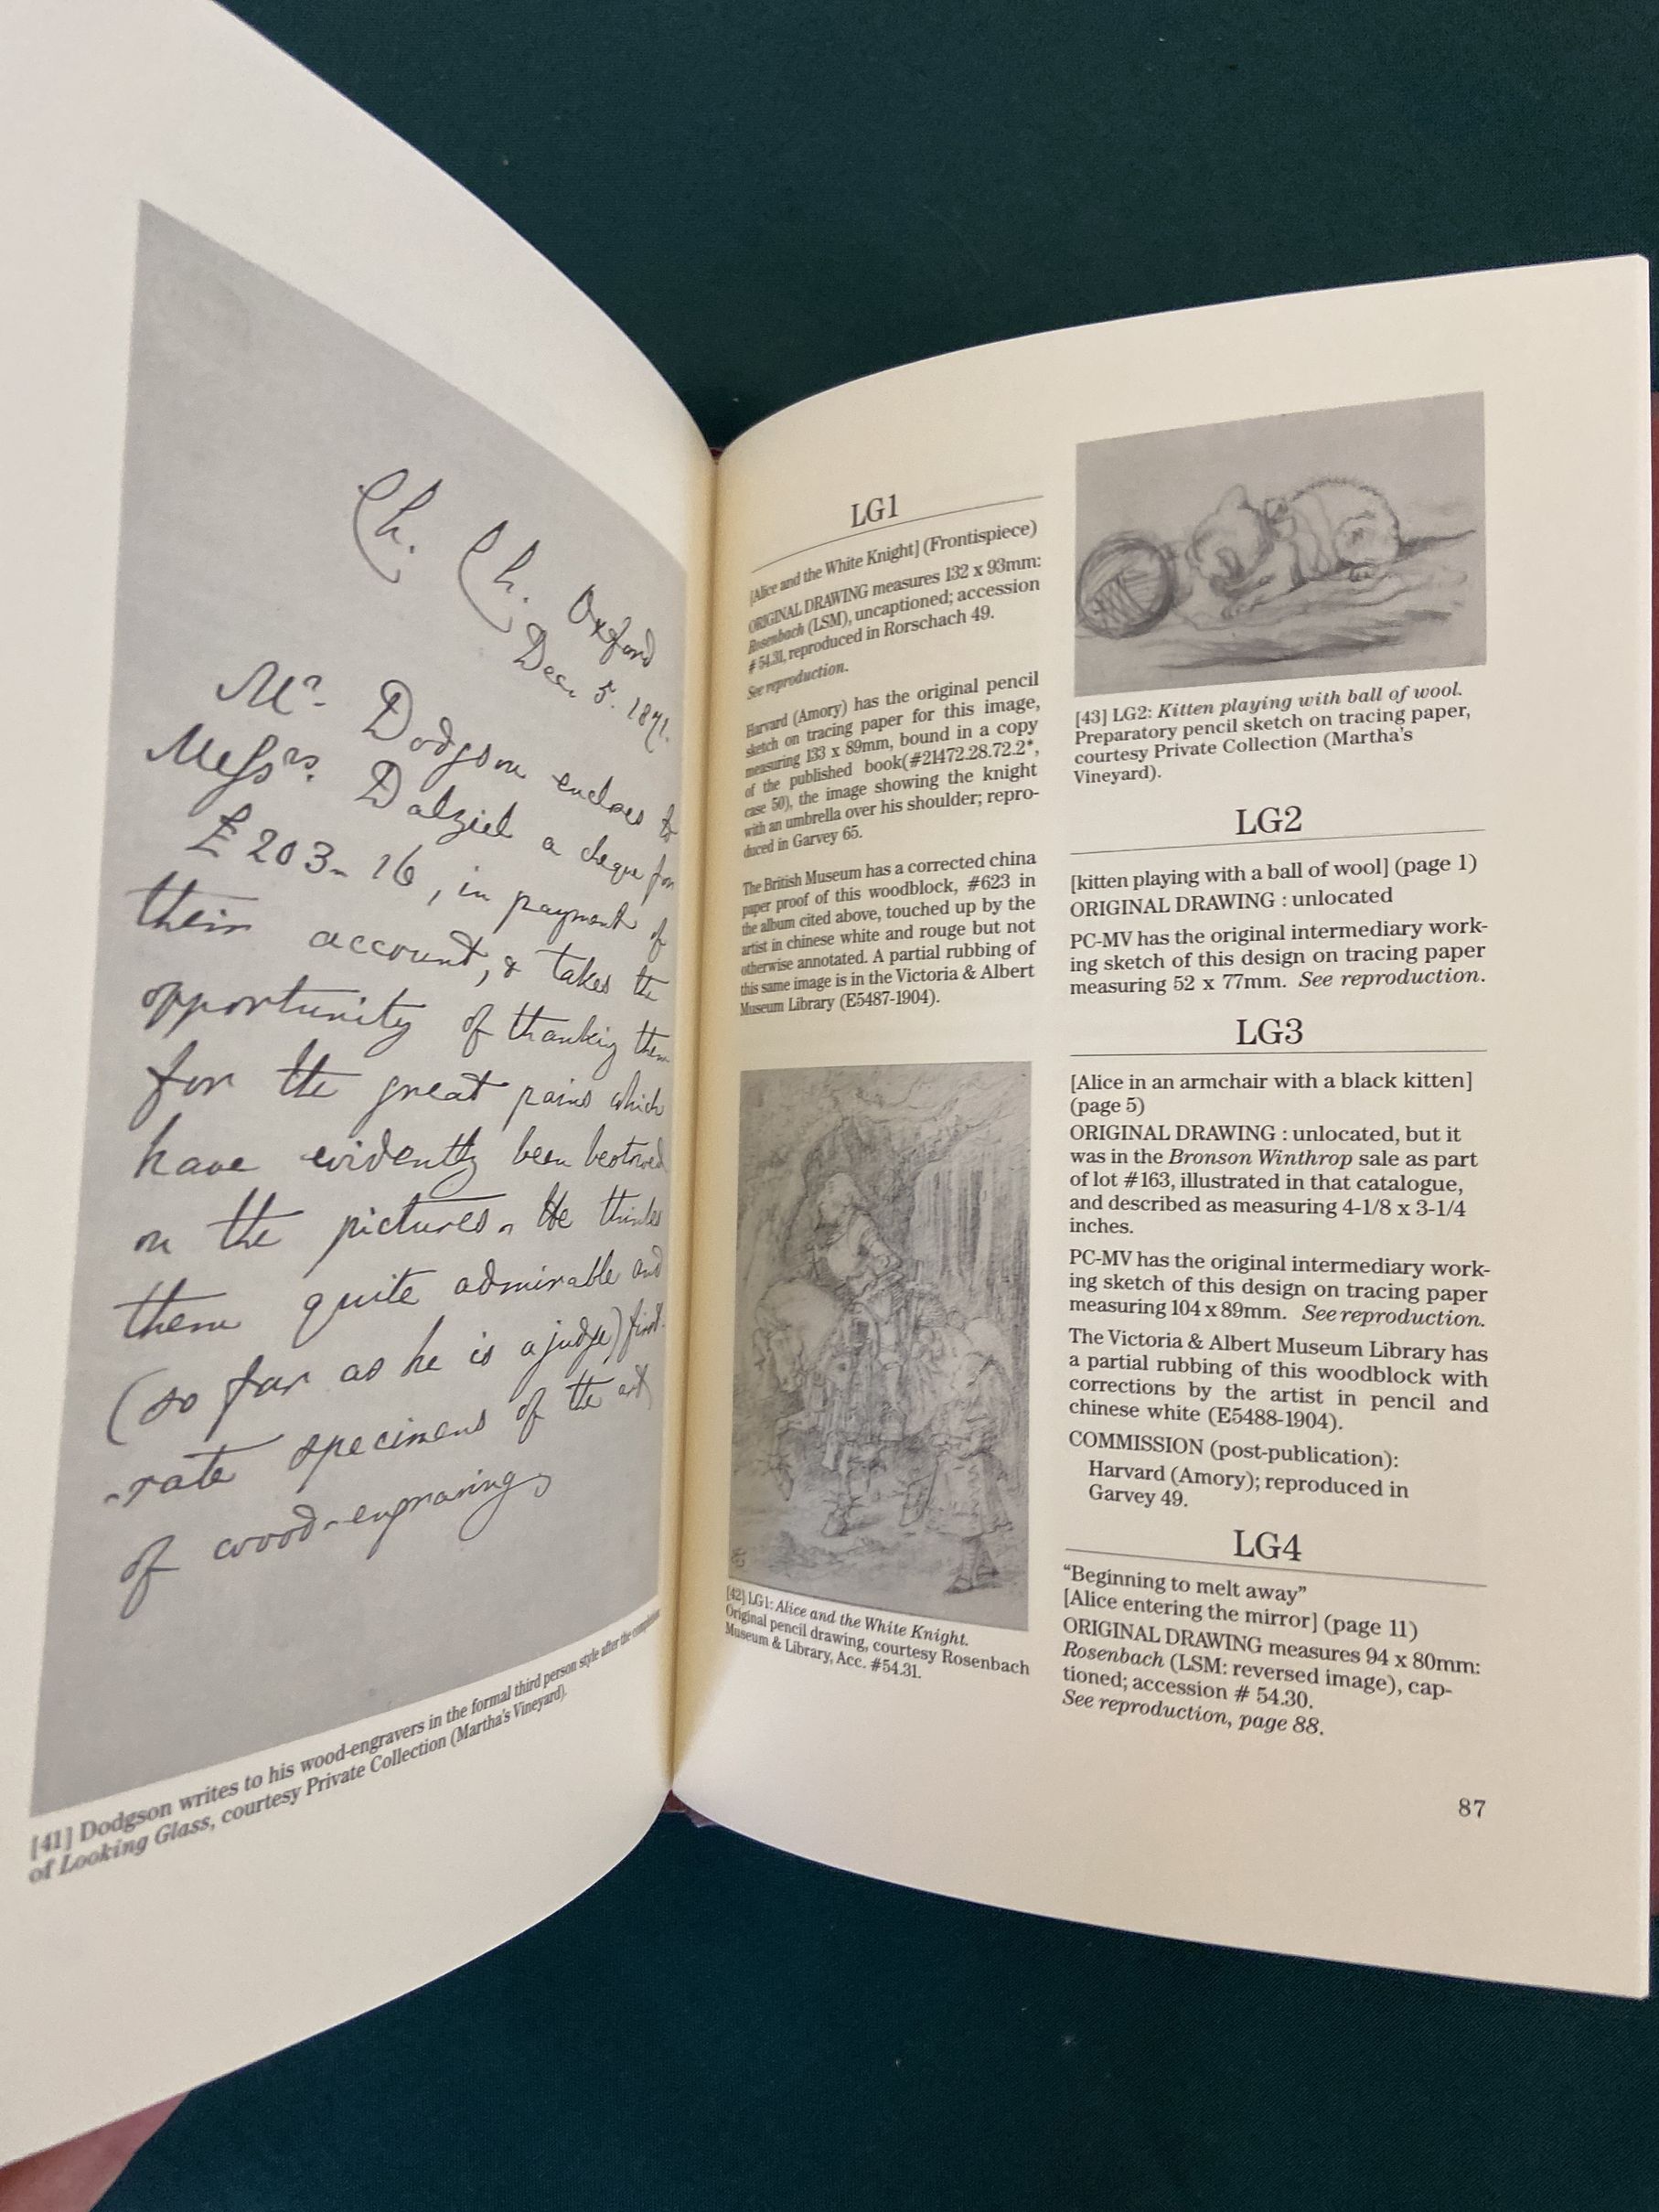 Ch. Ch. Oxford
Dec. 5. 1871.
Mr. Dodgson encloses to
Messrs. Dalziel a cheque for
£203-16, in payment of
their account, & takes the
opportunity of thanking them
for the great pains which
have evidently been bestowed
on the pictures. He thinks
them quite admirable and
(so far as he is a judge) first-
-rate specimens of the art
of wood-engraving
[41] Dodgson writes to his wood-engravers in the formal third person style after the completion
of Looking Glass, courtesy Private Collection (Martha's Vineyard).
LG1
[Alice and the White Knight] (Frontispiece)
ORIGINAL DRAWING measures 132 x 93mm:
Rosenbach (LSM), uncaptioned; accession
# 54.31, reproduced in Rorschach 49.
See reproduction.
Harvard (Amory) has the original pencil
sketch on tracing paper for this image,
measuring 133 x 89mm, bound in a copy
of the published book(#21472.28.72.2*,
case 50), the image showing the knight
with an umbrella over his shoulder; repro-
duced in Garvey 65.
The British Museum has a corrected china
paper proof of this woodblock, #623 in
the album cited above, touched up by the
artist in chinese white and rouge but not
otherwise annotated. A partial rubbing of
this same image is in the Victoria & Albert
Museum Library (E5487-1904).
[42] LG1: Alice and the White Knight.
Original pencil drawing, courtesy Rosenbach
Museum & Library, Acc. #54.31.
[43] LG2: Kitten playing with ball of wool.
Preparatory pencil sketch on tracing paper,
courtesy Private Collection (Martha's
Vineyard).
LG2
[kitten playing with a ball of wool] (page 1)
ORIGINAL DRAWING : unlocated
PC-MV has the original intermediary work-
ing sketch of this design on tracing paper
measuring 52 x 77mm. See reproduction.
LG3
[Alice in an armchair with a black kitten]
(page 5)
ORIGINAL DRAWING : unlocated, but it
was in the Bronson Winthrop sale as part
of lot #163, illustrated in that catalogue,
and described as measuring 4-1/8 x 3-1/4
inches.
PC-MV has the original intermediary work-
ing sketch of this design on tracing paper
measuring 104 x 89mm. See reproduction.
The Victoria & Albert Museum Library has
a partial rubbing of this woodblock with
corrections by the artist in pencil and
chinese white (E5488-1904).
COMMISSION (post-publication):
Harvard (Amory); reproduced in
Garvey 49.
LG4
“Beginning to melt away”
[Alice entering the mirror] (page 11)
ORIGINAL DRAWING measures 94 x 80mm:
Rosenbach (LSM: reversed image), cap-
tioned; accession # 54.30.
See reproduction, page 88.
87